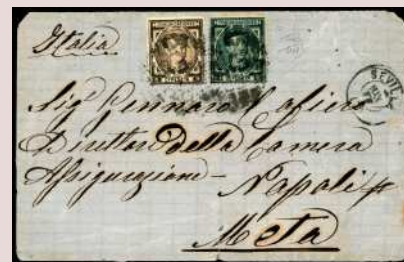 Italia
SEVIL
Sig Gennaro Cafiero
Direttor della Camera
Assigurazione - Napoli p
Meta